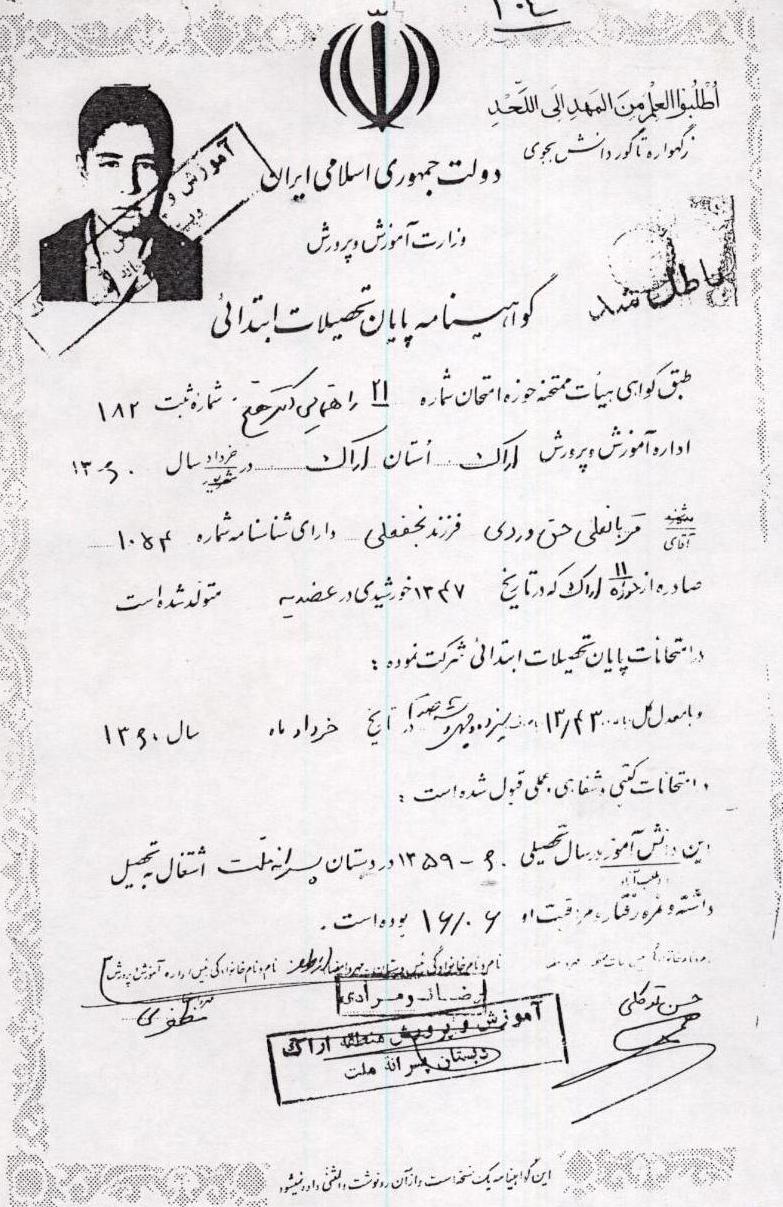 ۱۰۴
اُطْلُبُوا العِلْمَ مِنَ المَهدِ اِلَی اللَّحْدِ
زگهواره تا گور دانش بجوی
دولت جمهوری اسلامی ایران
وزارت آموزش و پرورش
باطل شد
آموزش و
گواهینامه پایان تحصیلات ابتدائی
طبق گواهی هیأت ممتحنه حوزه امتحان شماره ۲۱ شماره ثبت ۱۸۲
اداره آموزش و پرورش اراک اُستان اراک در خرداد شهریور سال ۱۳۶۰
آقای قربانعلی حق وردی فرزند نجفعلی دارای شناسنامه شماره ۱۰۵۴
صادره از حوزه ۱۱ اراک که در تاریخ ۱۳۴۷ خورشیدی در عضدیه متولد شده است
در امتحانات پایان تحصیلات ابتدائی شرکت نموده :
و با معدل کل ۱۳/۴۳ سیزده و چهل و سه صدم در تاریخ خرداد ماه سال ۱۳۶۰
در امتحانات کتبی و شفاهی و عملی قبول شده است :
این دانش آموز در سال تحصیلی ۶۰ - ۱۳۵۹ در دبستان پسرانه ملت اشتغال به تحصیل
داشته و نمره رفتار و مراقبت او ۱۶/۰۶ بوده است .
نام و نام خانوادگی رئیس دبستان نام و نام خانوادگی رئیس اداره آموزش و پرورش
حسن توکلی
رضا نو مرادی
مظفری
آموزش و پرورش منطقه اراک
دبستان پسرانه ملت
این گواهینامه یک نسخه است و از آن رونوشت و المثنی داده نمیشود